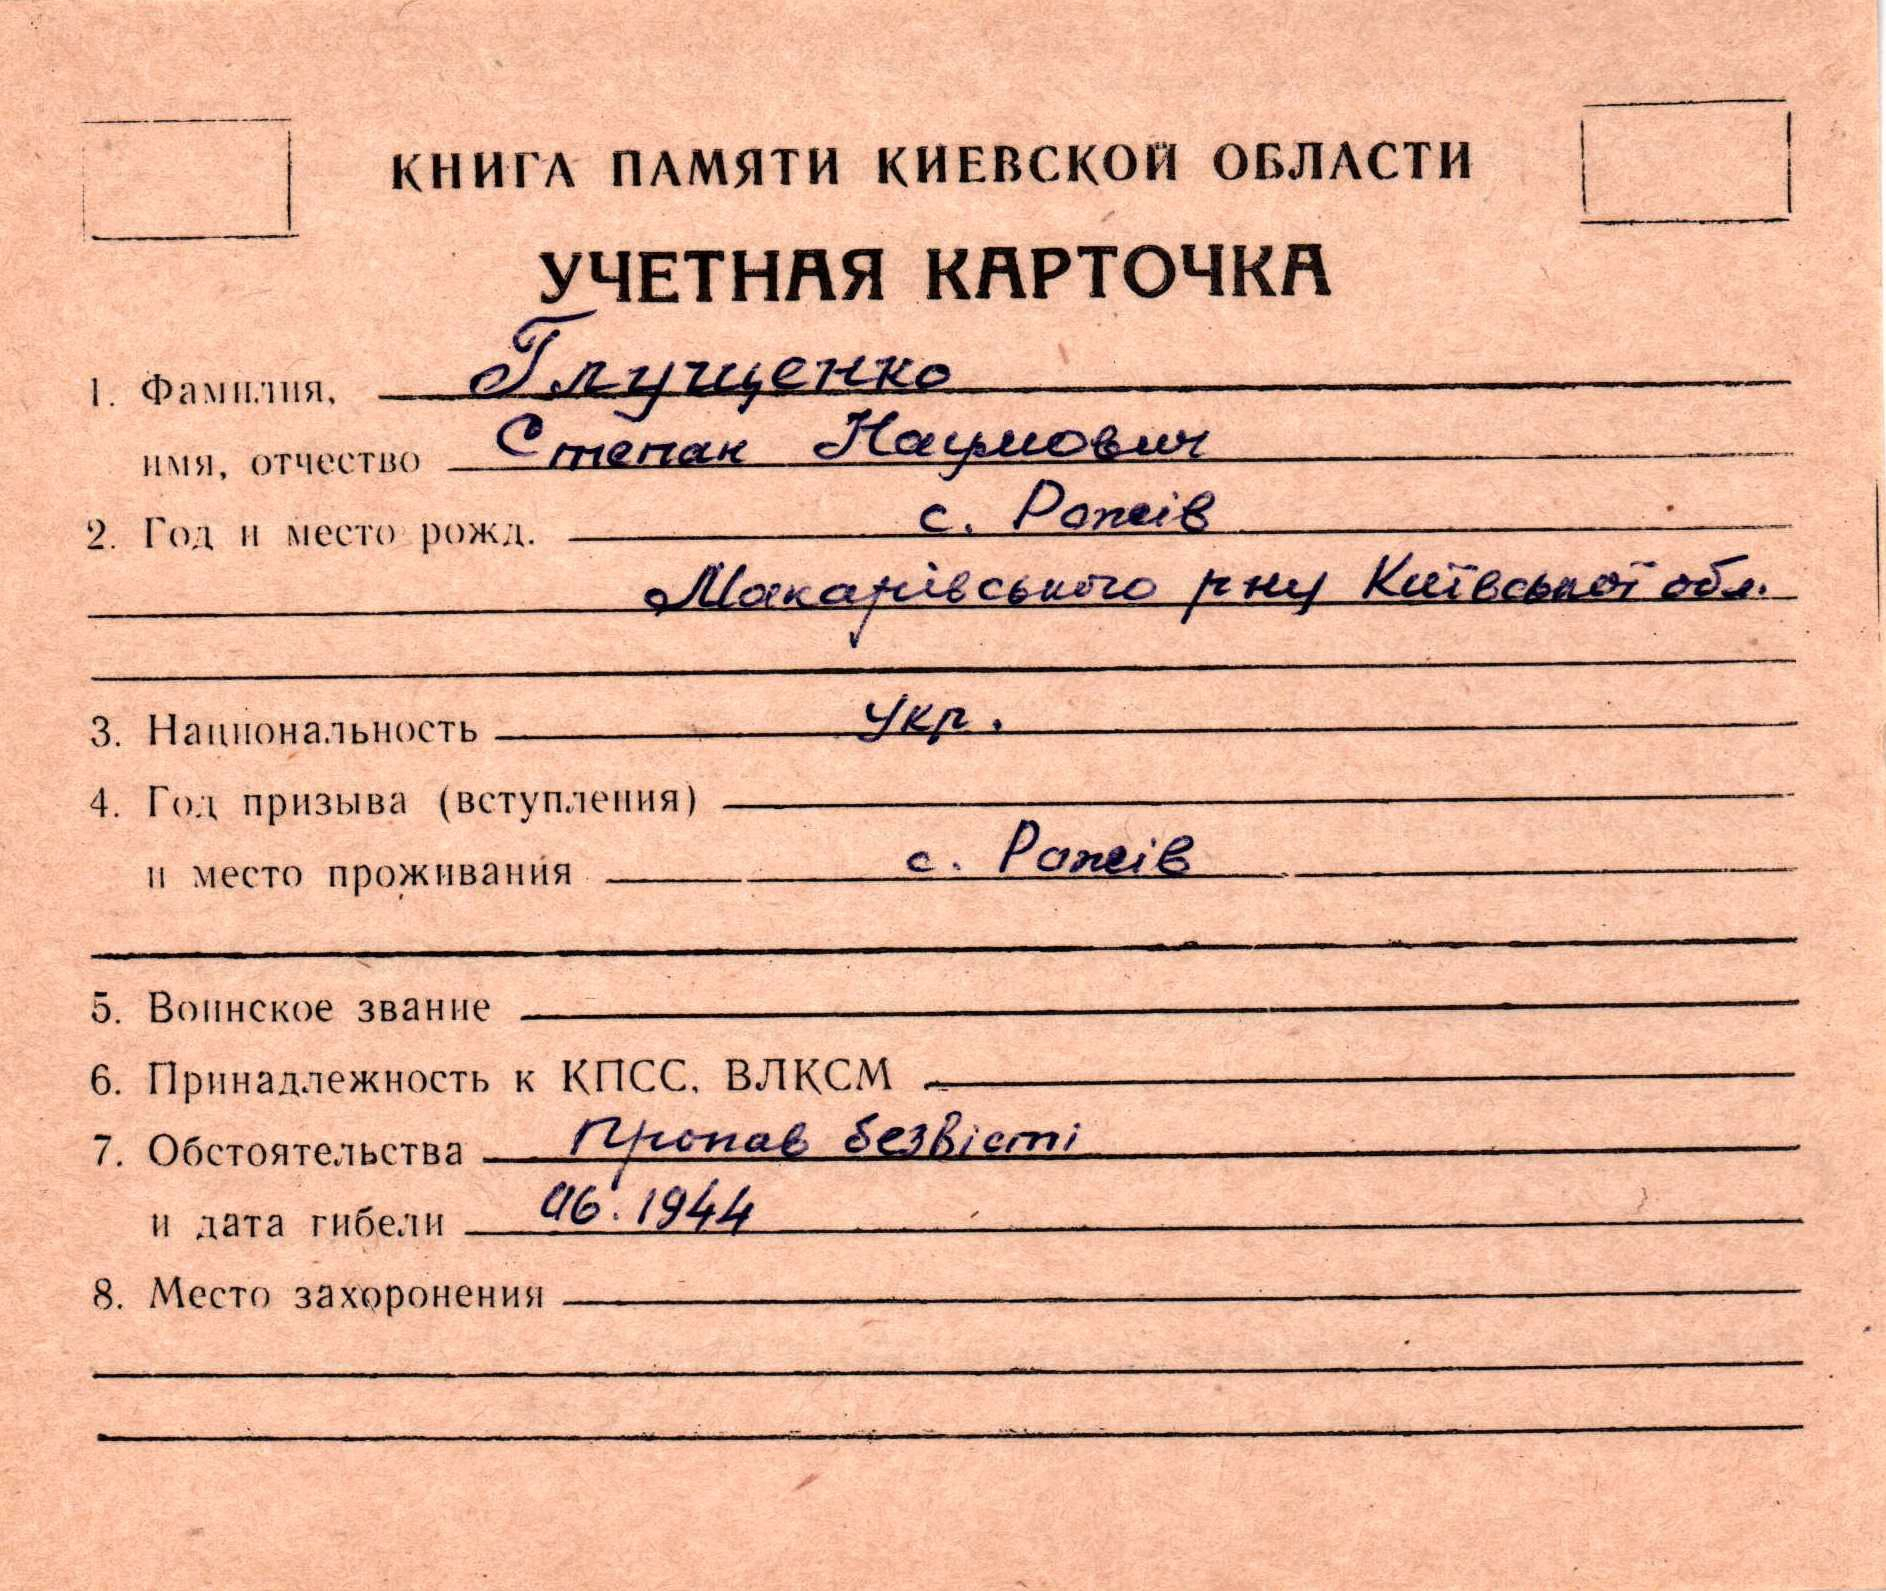 КНИГА ПАМЯТИ КИЕВСКОЙ ОБЛАСТИ
УЧЕТНАЯ КАРТОЧКА
1. Фамилия, Глущенко
имя, отчество Степан Наумович
2. Год и место рожд. с. Рожів
Макарівського р-ну Київської обл.
3. Национальность укр.
4. Год призыва (вступления)
и место проживания с. Рожів
5. Воинское звание
6. Принадлежность к КПСС, ВЛКСМ
7. Обстоятельства Пропав безвісті
и дата гибели 06.1944
8. Место захоронения